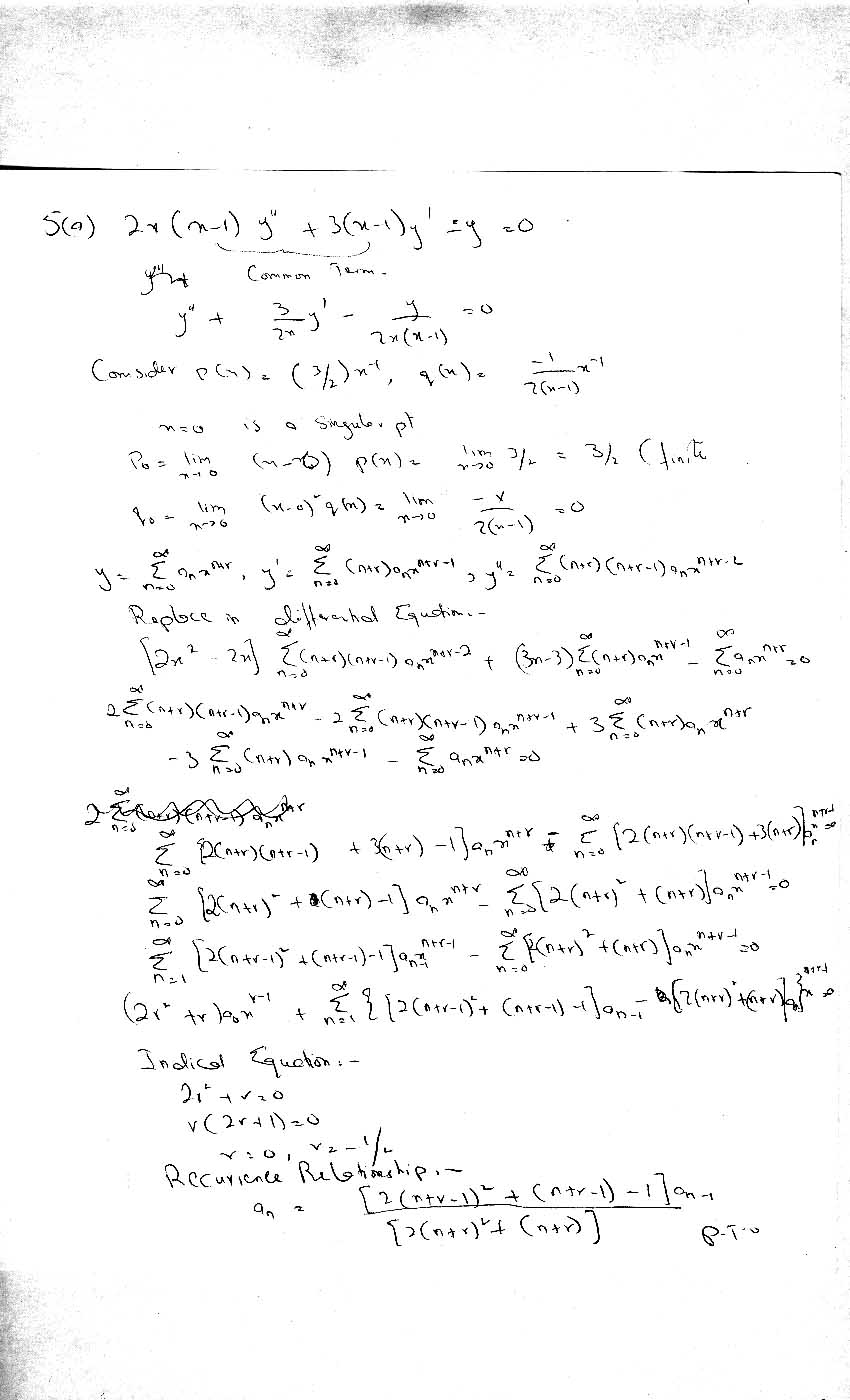 5(a) 2x(x-1) y'' + 3(x-1)y' - y = 0
Common Term -
y'' + 3/2x y' - y/2x(x-1) = 0
Consider p(x) = (3/2)x⁻¹, q(x) = -1/2(x-1) x⁻¹
x=0 is a singular pt
P₀ = lim x→0 (x-0) p(x) = lim x→0 3/2 = 3/2 (finite
q₀ = lim x→0 (x-0)² q(x) = lim x→0 -x/2(x-1) = 0
y = ∑ₙ₌₀^∞ aₙxⁿ⁺ʳ, y' = ∑ₙ₌₀^∞ (n+r)aₙxⁿ⁺ʳ⁻¹, y'' = ∑ₙ₌₀^∞ (n+r)(n+r-1)aₙxⁿ⁺ʳ⁻²
Replace in differential Equation:-
[2x² - 2x] ∑ₙ₌₀^∞ (n+r)(n+r-1)aₙxⁿ⁺ʳ⁻² + (3x-3)∑ₙ₌₀^∞ (n+r)aₙxⁿ⁺ʳ⁻¹ - ∑ₙ₌₀^∞ aₙxⁿ⁺ʳ = 0
2∑ₙ₌₀^∞ (n+r)(n+r-1)aₙxⁿ⁺ʳ - 2∑ₙ₌₀^∞ (n+r)(n+r-1)aₙxⁿ⁺ʳ⁻¹ + 3∑ₙ₌₀^∞ (n+r)aₙxⁿ⁺ʳ
- 3∑ₙ₌₀^∞ (n+r)aₙxⁿ⁺ʳ⁻¹ - ∑ₙ₌₀^∞ aₙxⁿ⁺ʳ = 0
∑ₙ₌₀^∞ [2(n+r)(n+r-1) + 3(n+r) - 1]aₙxⁿ⁺ʳ - ∑ₙ₌₀^∞ [2(n+r)(n+r-1) + 3(n+r)]aₙxⁿ⁺ʳ⁻¹ = 0
∑ₙ₌₀^∞ [2(n+r)² + (n+r) - 1]aₙxⁿ⁺ʳ - ∑ₙ₌₀^∞ [2(n+r)² + (n+r)]aₙxⁿ⁺ʳ⁻¹ = 0
∑ₙ₌₁^∞ [2(n+r-1)² + (n+r-1) - 1]aₙ₋₁xⁿ⁺ʳ⁻¹ - ∑ₙ₌₀^∞ [2(n+r)² + (n+r)]aₙxⁿ⁺ʳ⁻¹ = 0
(2r² + r)a₀xʳ⁻¹ + ∑ₙ₌₁^∞ {[2(n+r-1)² + (n+r-1) - 1]aₙ₋₁ - [2(n+r)² + (n+r)]aₙ}xⁿ⁺ʳ⁻¹ = 0
Indical Equation:-
2r² + r = 0
r(2r+1) = 0
r = 0, r = -1/2
Recurience Relationship:-
aₙ = [2(n+r-1)² + (n+r-1) - 1]aₙ₋₁ / [2(n+r)² + (n+r)]
P.T.O